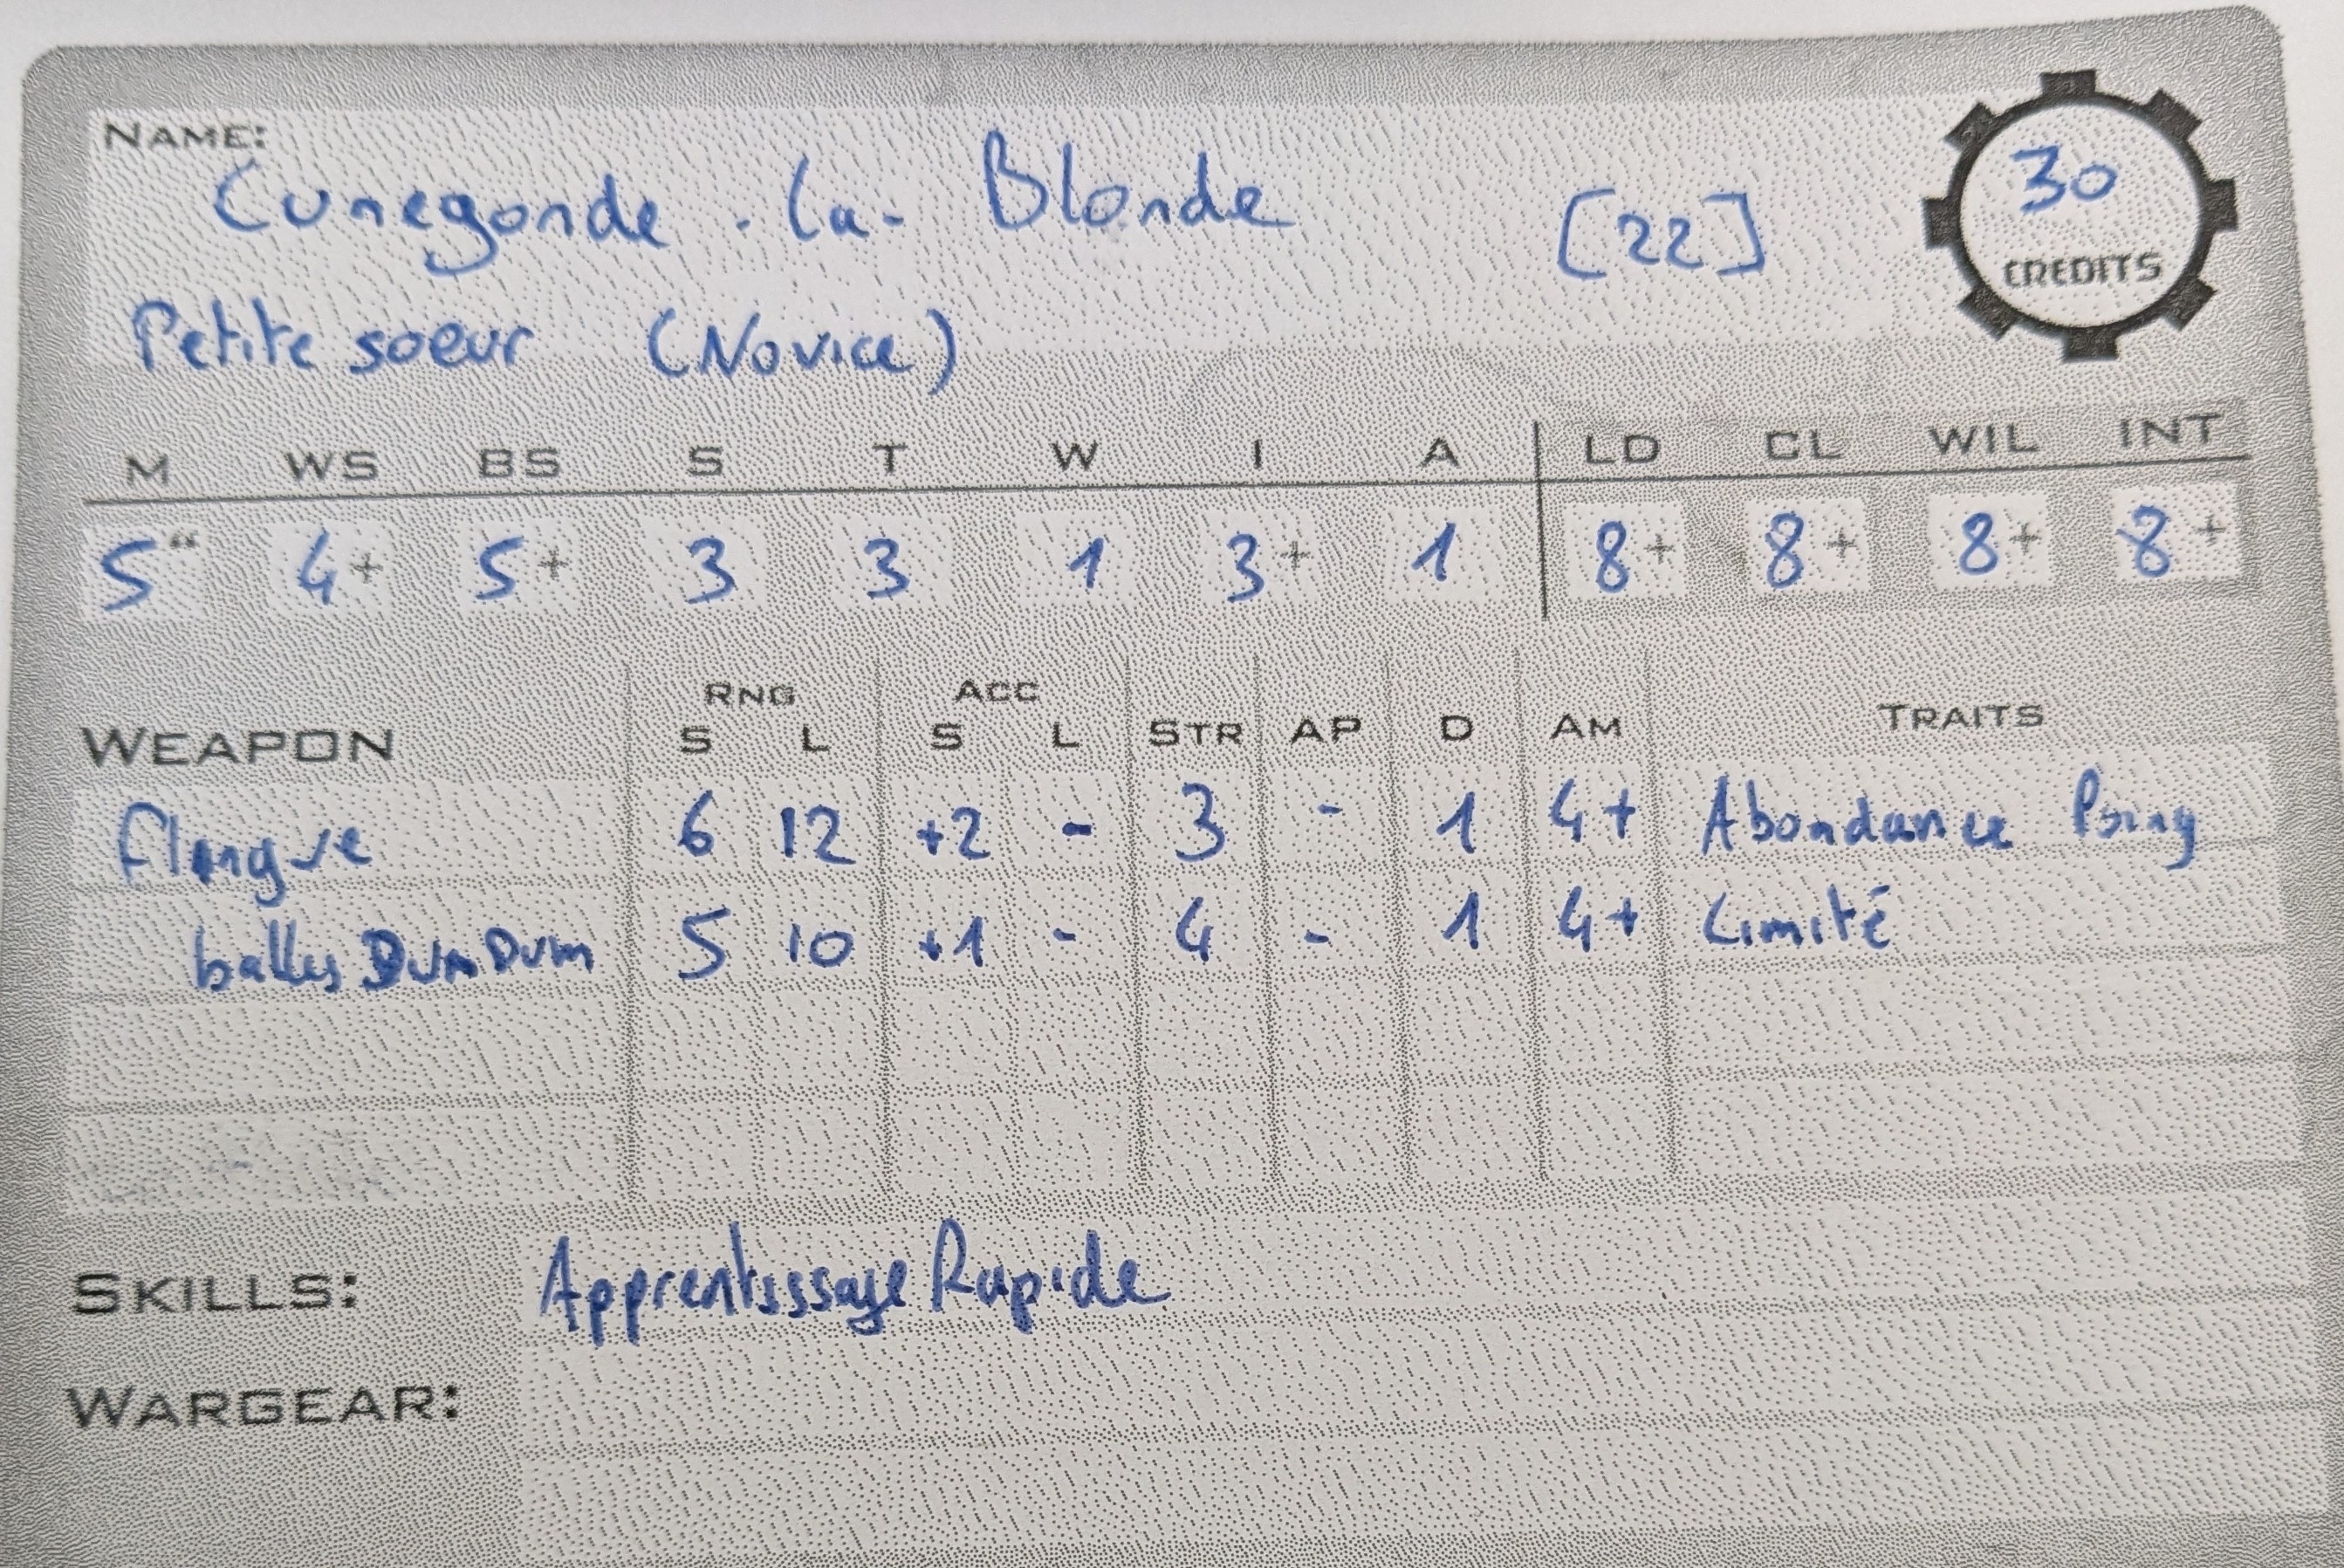 NAME:
Cunegonde - la - Blonde [22] 30
CREDITS
Petite soeur (Novice)
M WS BS S T W I A LD CL WIL INT
5" 4+ 5+ 3 3 1 3+ 1 8+ 8+ 8+ 8+
RNG ACC
WEAPON S L S L STR AP D AM TRAITS
flingue 6 12 +2 - 3 - 1 4+ Abondance Poing
balles DumDum 5 10 +1 - 4 - 1 4+ Limité
SKILLS: Apprentissage Rapide
WARGEAR: